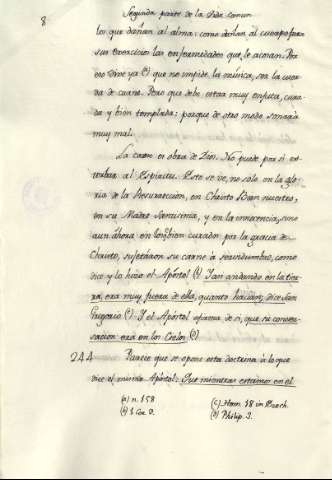 8
Segunda parte de la Vida comun
los que dañan al alma: como dañan al cuerpo para
sus exercicios las enfermedades que le acosan. Por
eso dixe ya (a) que no impide la música, sea la cuer-
da de carne. Pero que debe estar muy enjuta, cura-
da y bien templada: porque de otro modo sonará
muy mal.
La carne es obra de Dios. No puede por si es-
torbar al Espiritu. Esto se ve, no solo en la glo-
ria de la Resurreccion, en Christo Bien nuestro,
en su Madre Santissima, y en la innocencia, sino
aun áhora en los bien curados por la gracia de
Christo, sujetaron su carne á servidumbre, como
dice y lo hizo el Apóstol (b) I an andando en la tier-
ra, era muy fuera de ella, quanto hacian, dice San
Gregorio (c). Y el Apóstol afirma de si, que su conver-
sacion era en los Cielos (d)
244 Parece que se opone esta doctrina á lo que
dice el mismo Apóstol: Que mientras estamos en el
(a) n. 158
(b) 1 Cor. 9.
(c) Hom. 18 in Ezech.
(d) Philip. 3.